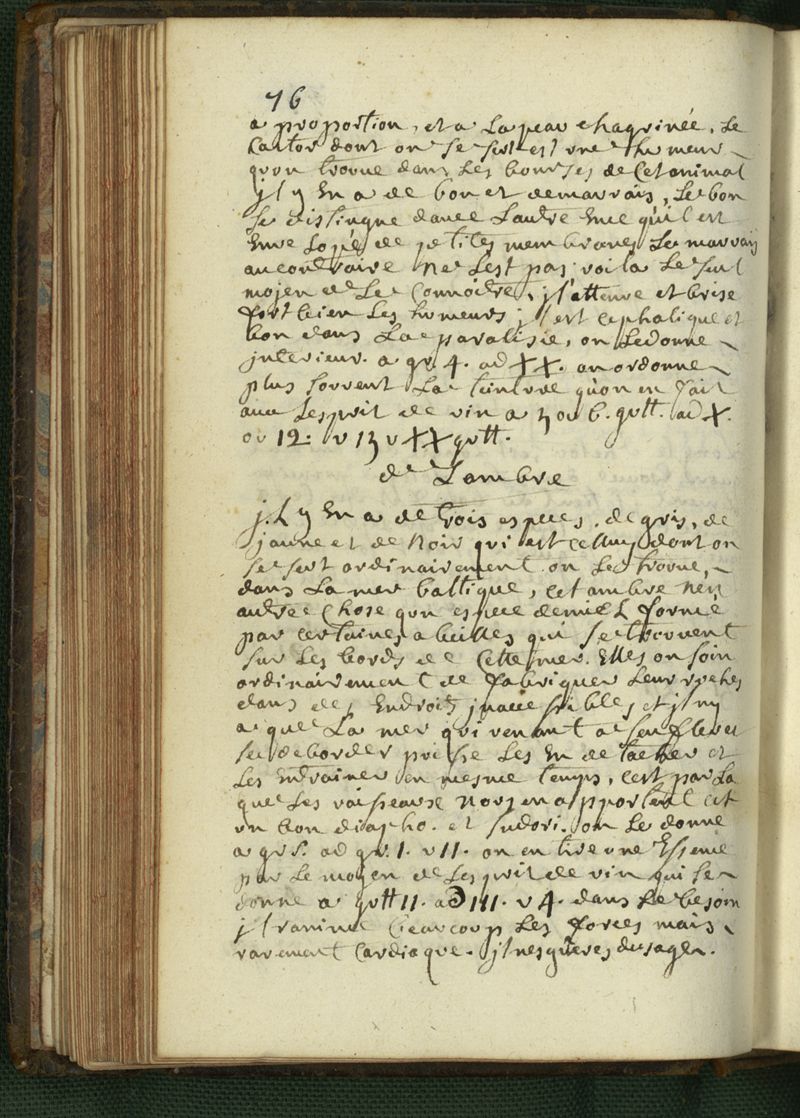 76
a proportion, et a La peau chagrinée, Le
Castor dont on se sert est vne humeur
quon trouue dans Les bourses de Cet animal
jl y En a de bon et demauuais, Le bon
se distingue dauec Lautre Ence quil est
Enuelopé de petites membranes Le mauuais
aucontraire ne Lest pas; voila Le seul
mojen de Le Connoitre, jl attenue et brise
fort bien Les humeurs jl est cephalique et
bon dans La paralisie, on Ledonne
jnterieur. a gr. 4. ad XX. on ordonne
plus souuent La teinture quon en fait
auec Lesprit de vin a 5 ou 6. gutt. ad X.
ou 12. v 15 v XX gutt.
de Lambre
jL y En a de trois especes, de gris, de
jaune et de Noir qui est celluy dont on
se sert ordinairement on Le trouue
dans La mer baltique, Cet ambre nest
autre Chose qun espece de miel formé
par certaines abeilles qui se trouuent
sur Les bords de Cette mer. Elles on soin
ordinairement de fabriquer Leur ruches
dans des Endroits jnaccessibles et jl ny
a que La mer qui venant a senfler et
se deborder puisse Les En detacher et
Les Entrainer en mesme temps, Cest par La
que Les vaisseaux nous en apportent cest
vn bon diapho. et sudori. on Le donne
a gr s. ad gr. I. v II. on en tire vne Essence
par Le moyen de Lesprit de vin qui se
donne a gutt II. ad III. v 4. dans Le besoin
jl ranime beaucoup Les forces mais
rarement Cardiaque. jl nes gueres dusage.